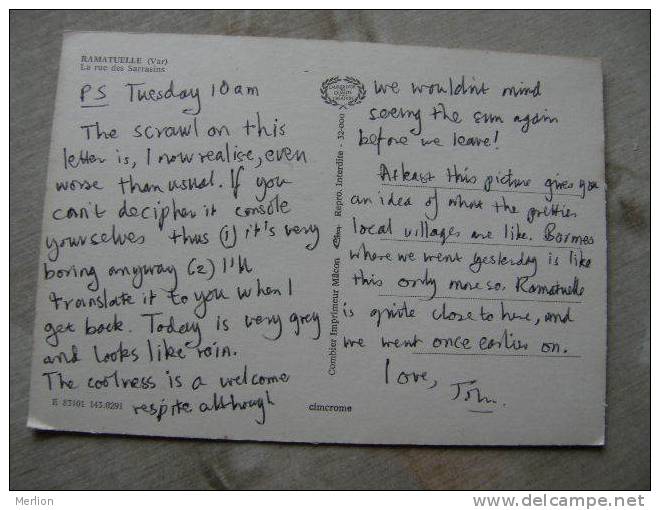 RAMATUELLE (Var)
La rue des Sarrasins
PS Tuesday 10am
The scrawl on this
letter is, I now realise, even
worse than usual. If you
can't decipher it console
yourselves thus (1) it's very
boring anyway (2) I'll
translate it to you when I
get back. Today is very grey
and looks like rain.
The coolness is a welcome
respite although
E 83101 143.0291
cimcrome
Combier Imprimeur Mâcon Repro. Interdite - 32-000
we wouldn't mind
seeing the sun again
before we leave!
At least this picture gives you
an idea of what the prettier
local villages are like. Bormes
where we went yesterday is like
this only more so. Ramatuelle
is quite close to here, and
we went once earlier on.
love,
Tom.
Merlion
www.delcampe.net